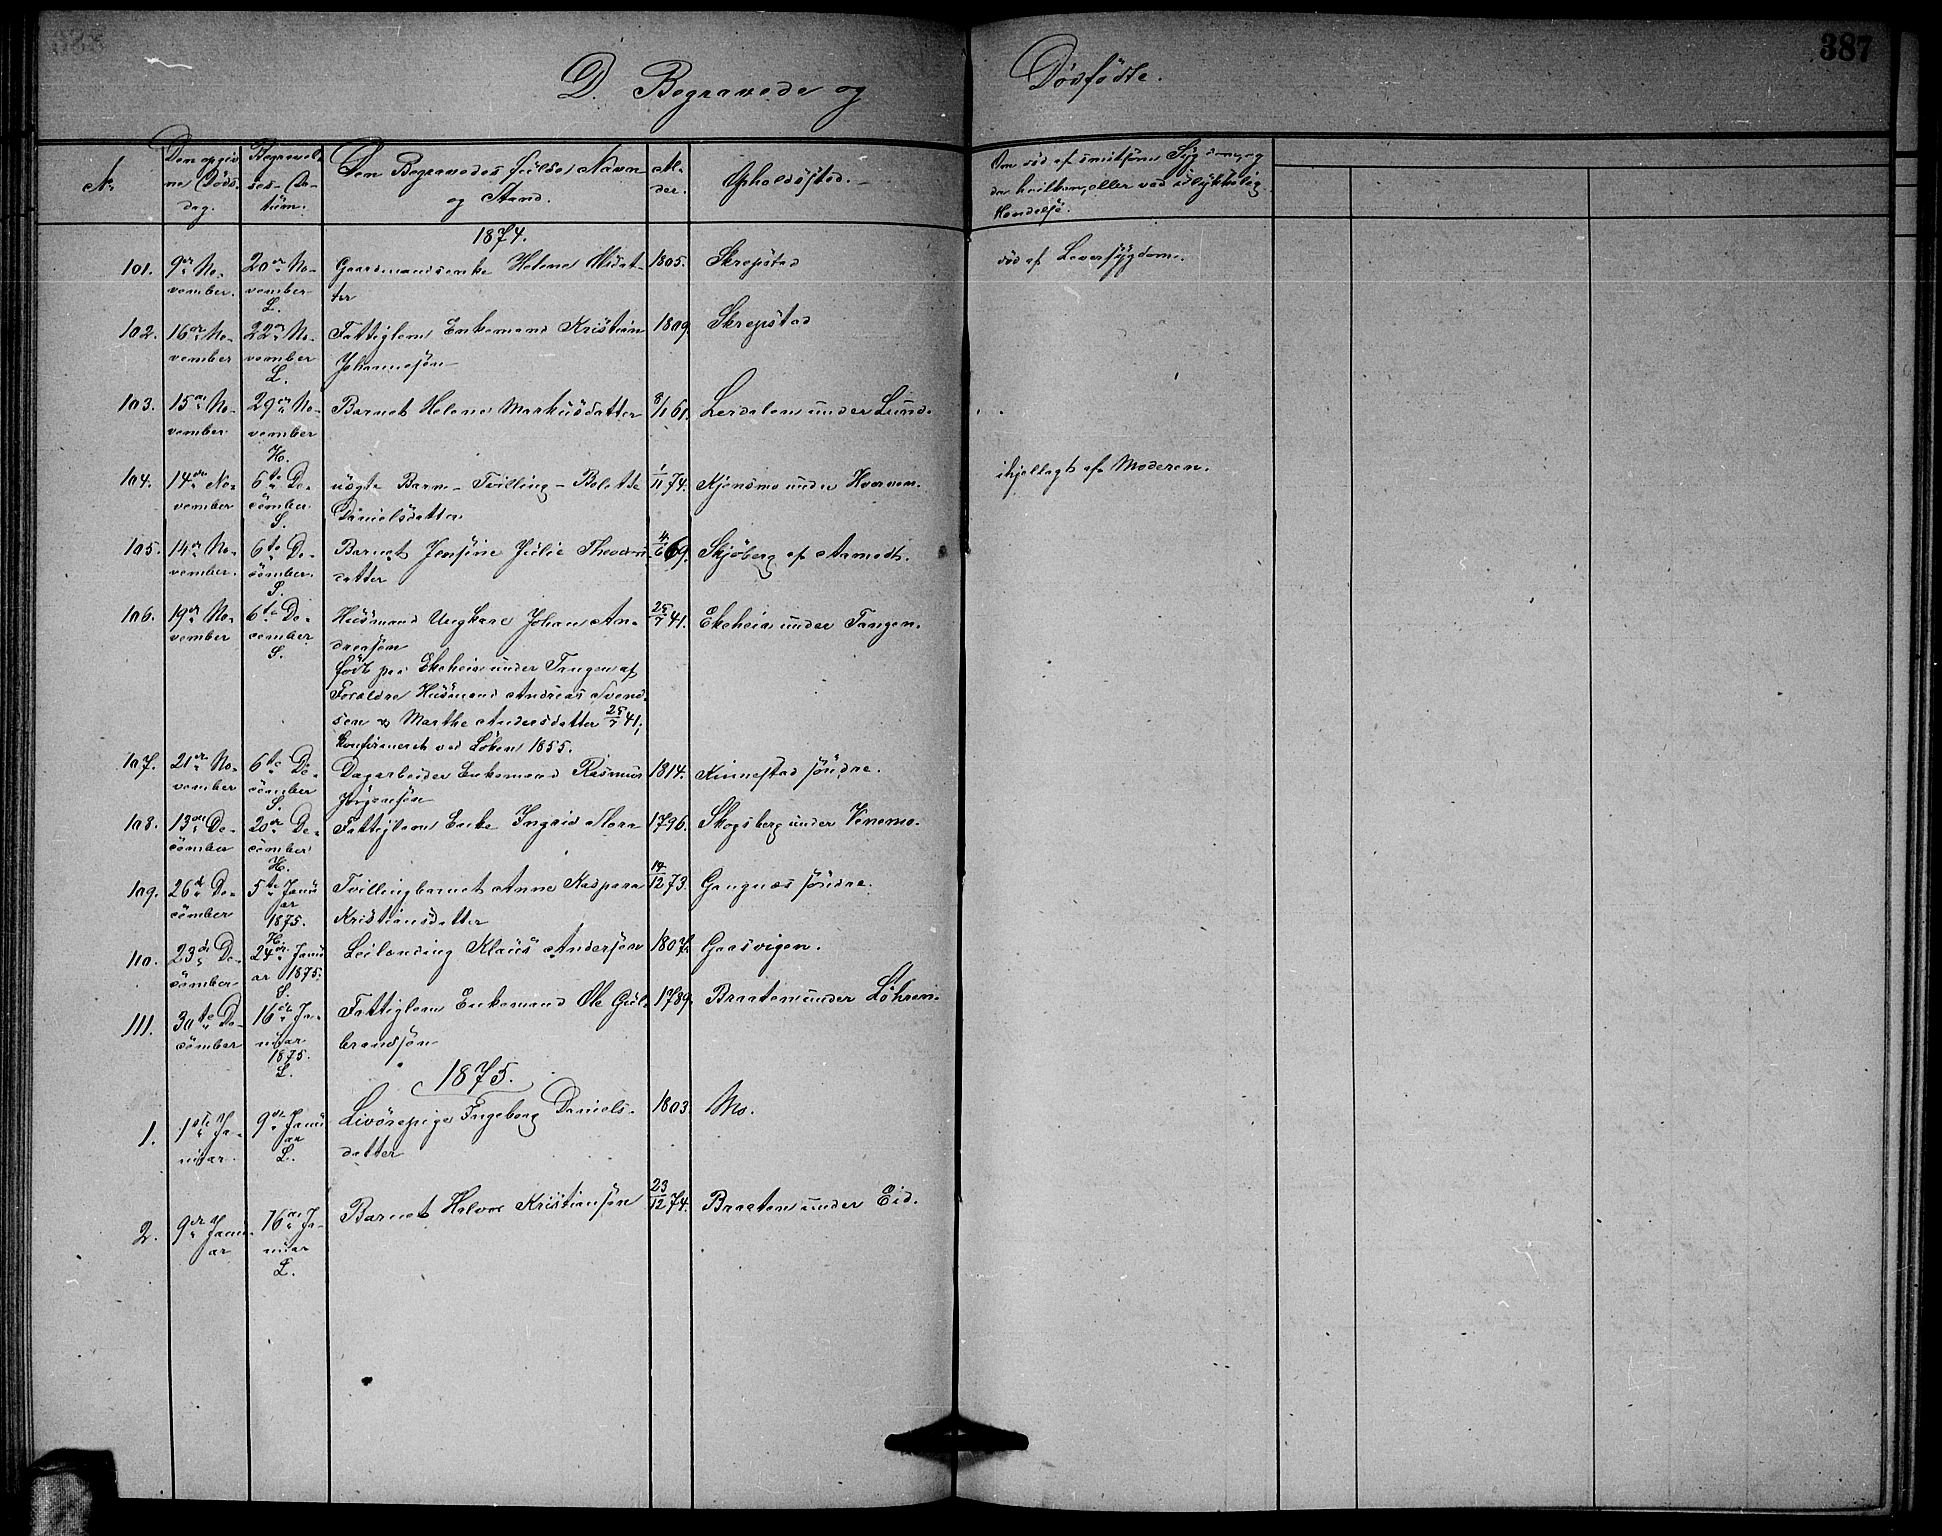 387
D. Begravede og Dødfödte.
No
Den opgivne Døds dag.
Begravelses-Datum.
Den Begravedes fulde Navn og Stand.
Alder.
Opholdssted.
Om död af smitsom Sygdom, og da hvilken, eller ved ulykkelig Hændelse.
1874.
101. 9de November. 20de November L. Gaardmandsenke Helene Olsdatter 1805. Skrepstad död af Leversygdom.
102. 16de November 22de November L. Fattiglem Enkemand Kristian Johannesøn 1809 Skrepstad
103. 15de November 29de November H. Barnet Helene Markusdatter 8/11 61. Lerdalen under Lund.
104. 14de November 6te December S. uægte Barn - Tvilling - Bolette Danielsdatter 1/11 74. Kjensmo under Huer ihjellagt af Moderen.
105. 14de November. 6te December. S. Barnet Jensine Julie datter 69. Skjöberg af Aamodt.
106. 19de November 6te December S. Husmand Ungkarl Johan Andreasøn 25/7 41. Ekeheia under Tangen.
født paa Ekeheia under Tangen af
Forældre Husmand Andreas Svend-
sen og Marthe Andersdatter 25/7 41;
konfirmeret ved Løken 1855.
107. 21de November 6te December S. Dagarbeider Enkemand Rasmus Jörgensøn 1814. Kinnestad söndre.
108. 13de December 20de December H. Fattiglem Enke Ingrid 1796. Skogsberg under Venemo.
109. 26de December 5te Januar 1875. H. Tvillingbarnet Anne Kaspara Kristiansdatter 14/12 73. Gangnæs söndre.
110. 23de December 24de Januar 1875. S. Leilænding Klaus Andersøn 1807. Gaasvigen.
111. 30te December 16de Januar 1875. L. Fattiglem Enkemand Ole Gulbrandsøn 1789. Braaten under Løhren.
1875.
1. 1ste Januar. 9de Januar L. Livörepige Ingeborg Danielsdatter 1803. Mo.
2. 9de Januar 16de Januar L. Barnet Halvor Kristiansøn 23/12 74. Braaten under Eid.